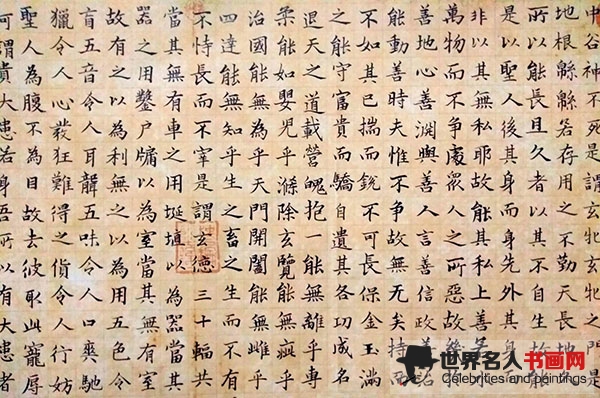 中谷神不死是謂玄牝玄牝之門是
地根緜緜若存用之不勤天長地久
所以能長且久者以其不自生故能
是以聖人後其身而身先外其身
非以其無私耶故能其私上善
萬物而不爭處衆人之所惡故幾
善地心善淵與善人言善信政善治
能動善時夫惟不爭故無尤矣持而
不如其已揣而銳不可長保金玉滿
之能守富貴而驕自遺其各功成名
退天之道載營魄抱一能無離乎專
柔能如嬰兒乎滌除玄覽能無疵乎
治國能無為乎天門開闔能無雌乎
四達能無知乎生之畜之生而不有
不恃長而不宰是謂玄德三十輻共
當其無有車之用埏埴以為器當其
器之用鑿戶牖以為室當其無有室
故有之以為利無之以為用五色令
盲五音令人耳聾五味令人口爽馳
獵令人心發狂難得之貨令人行妨
聖人為腹不為目故去彼取此寵辱
何謂貴大患若身吾所以有大患者
世界名人书画网
Celebrities and paintings